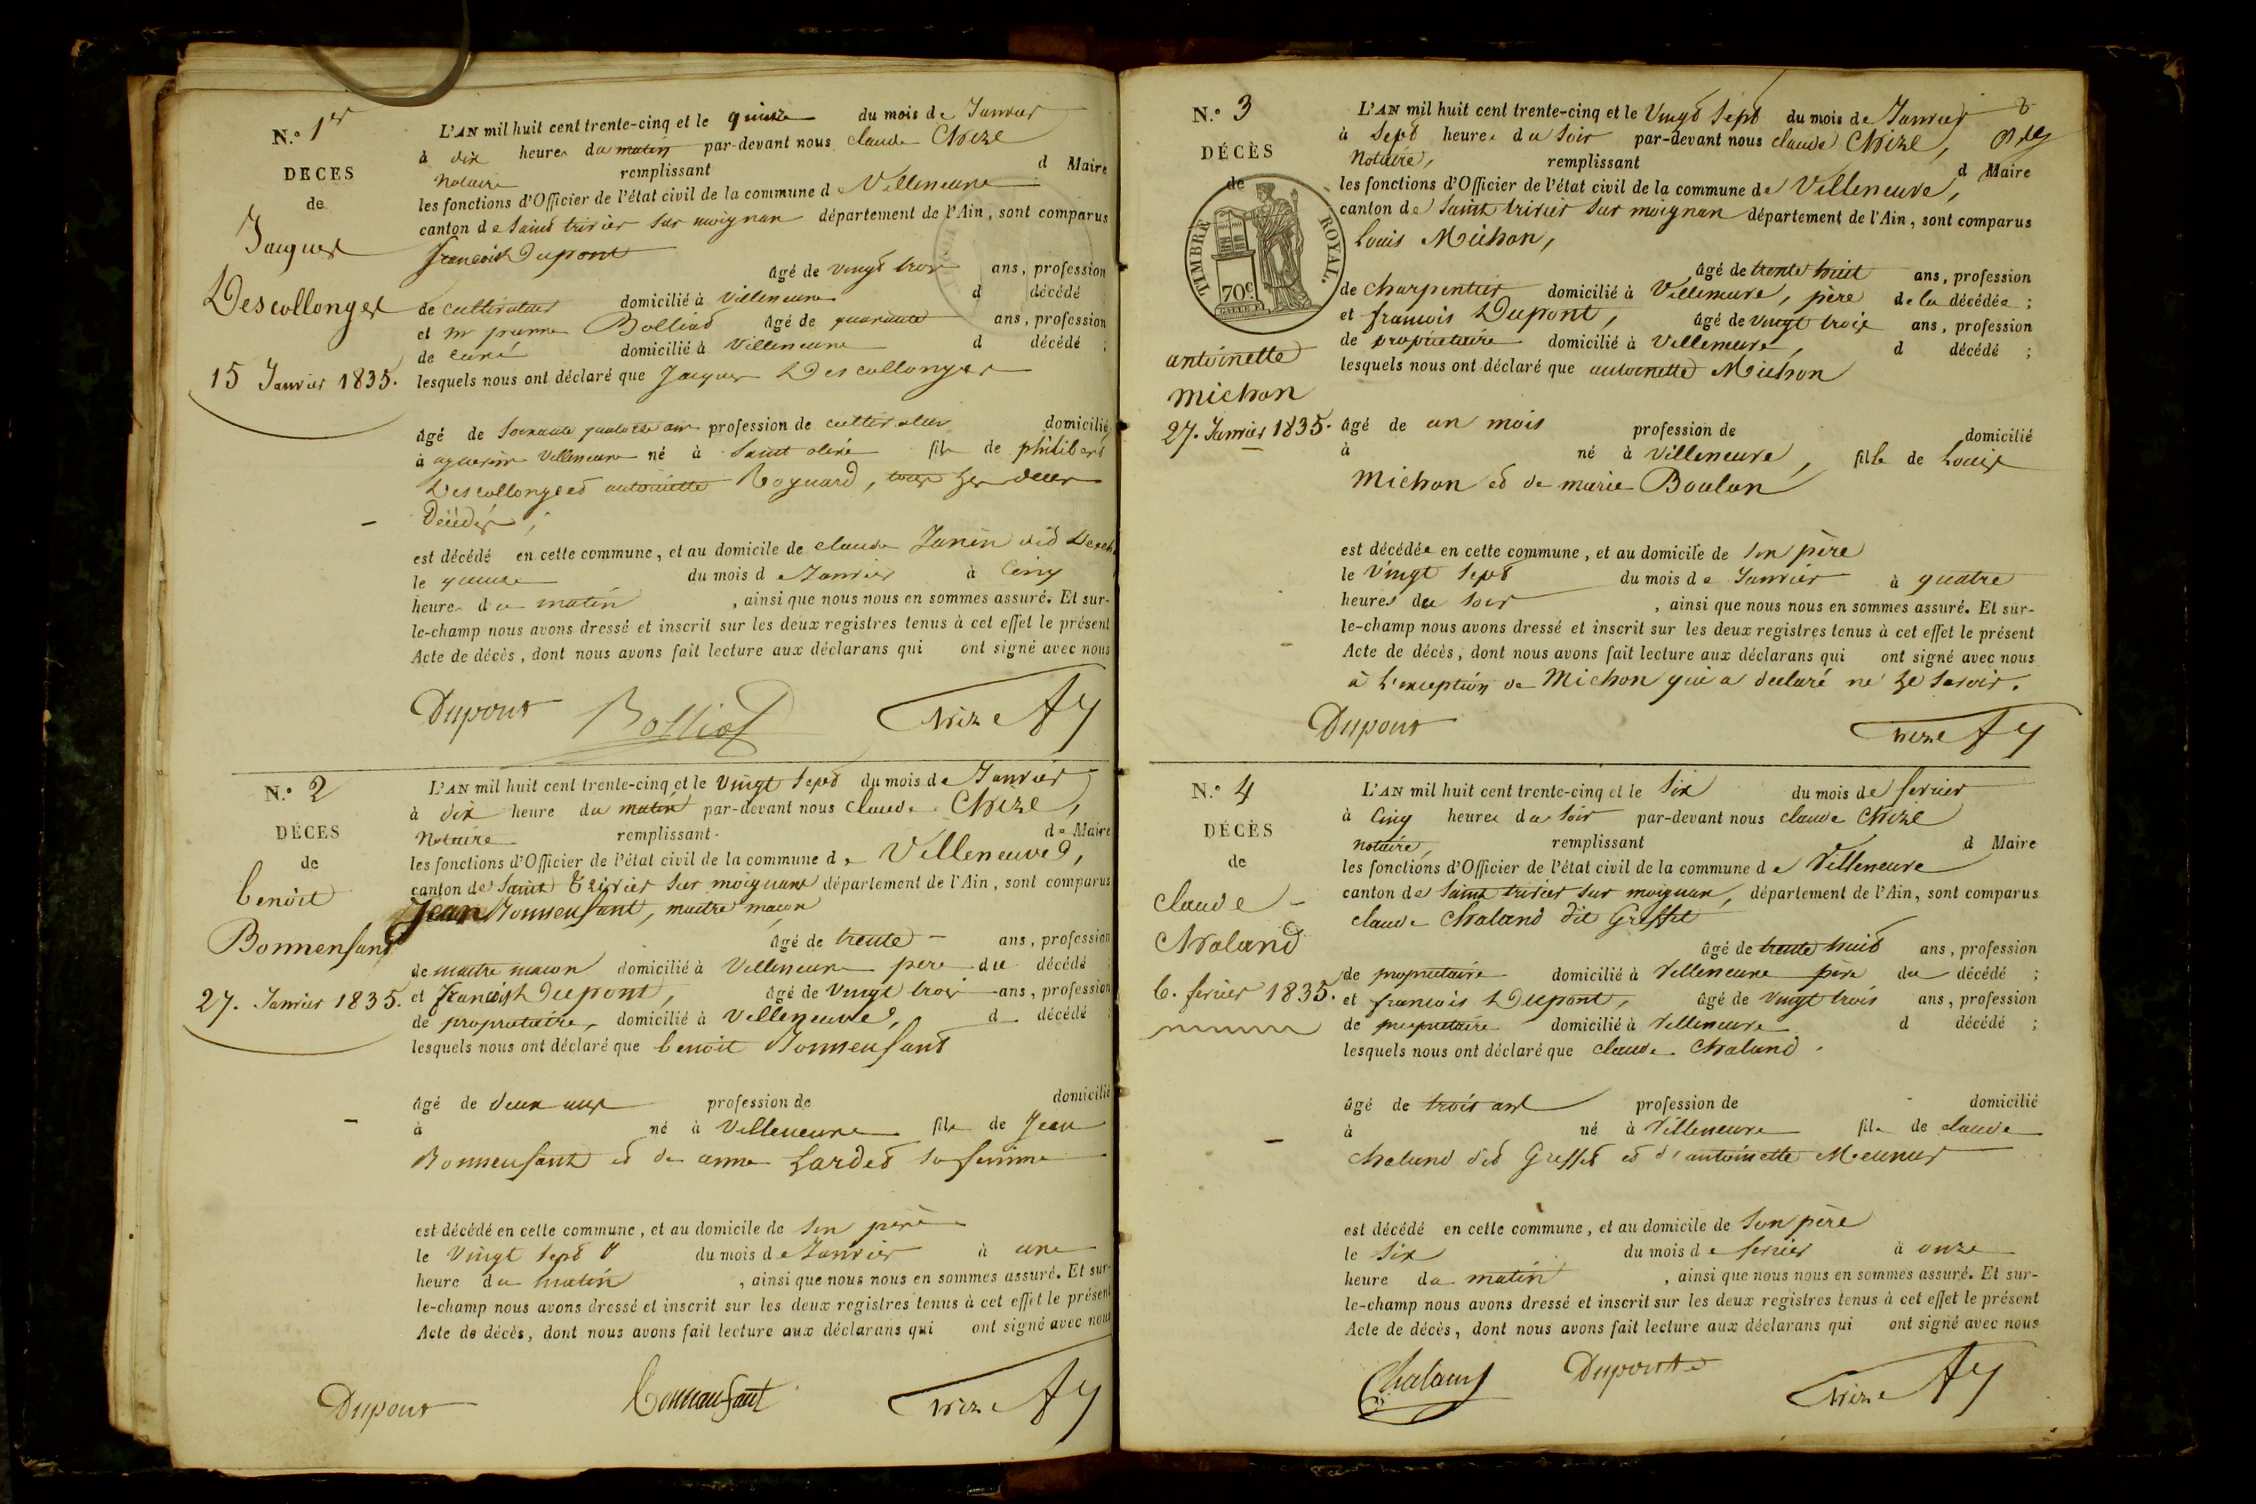 N.º 1er
DECES
de
Jacques
Descollonges
15 Janvier 1835.
L'AN mil huit cent trente-cinq et le quinze du mois de Janvier
à dix heures du matin par-devant nous claude Chize
Notaire remplissant d Maire
les fonctions d'Officier de l'état civil de la commune de Villeneuve
canton de Saint trivier sur moignan département de l'Ain, sont comparus
francois Dupont
âgé de vingt trois ans, profession
de cultivateur domicilié à Villeneuve d décédé ;
et mr Bolliat âgé de quarante ans, profession
de curé domicilié à Villeneuve d décédé ;
lesquels nous ont déclaré que Jacques Descollonges
âgé de Soixante quatorze ans profession de cultivateur domicilié
à Villeneuve né à Saint olive fils de philibert
Descollonges et antoinette Poguard, tous deux
Décédés ;
est décédé en cette commune, et au domicile de claude Janin dit
le quinze du mois de Janvier à Cinq
heures du matin , ainsi que nous nous en sommes assuré. Et sur-
le-champ nous avons dressé et inscrit sur les deux registres tenus à cet effet le présent
Acte de décès, dont nous avons fait lecture aux déclarans qui ont signé avec nous
Dupont Bolliat Chize
N.º 2
DÉCES
de
benoit
Bonnenfant
27. Janvier 1835.
L'AN mil huit cent trente-cinq et le Vingt Sept du mois de Janvier
à dix heure du matin par-devant nous claude Chize,
Notaire remplissant de Maire
les fonctions d'Officier de l'état civil de la commune de Villeneuve,
canton de Saint Trivier sur moignans département de l'Ain, sont comparus
Jean Bonnenfant, maitre macon
âgé de trente ans, profession
de maitre macon domicilié à Villeneuve père du décédé ;
et francois Dupont, âgé de vingt trois ans, profession
de proprietaire, domicilié à Villeneuve, d décédé ;
lesquels nous ont déclaré que benoit Bonnenfant
âgé de deux ans profession de domicilié
à né à Villeneuve fils de Jean
Bonnenfant et de anne Lardet sa femme
est décédé en cette commune, et au domicile de son père
le Vingt Sept du mois de Janvier à une
heure du matin , ainsi que nous nous en sommes assuré. Et sur-
le-champ nous avons dressé et inscrit sur les deux registres tenus à cet effet le présent
Acte de décès, dont nous avons fait lecture aux déclarans qui ont signé avec nous
Dupont Bonnanfant Chize
N.º 3
DÉCÈS
de
TIMBRE ROYAL.
70c.
antoinette
michon
27. Janvier 1835.
L'AN mil huit cent trente-cinq et le Vingt Sept du mois de Janvier
à Sept heures du Soir par-devant nous claude Chize,
Notaire, remplissant d Maire
les fonctions d'Officier de l'état civil de la commune de Villeneuve,
canton de Saint trivier Sur moignan département de l'Ain, sont comparus
Louis Michon,
âgé de trente huit ans, profession
de charpentier domicilié à Villeneuve, père de la décédée ;
et francois Dupont, âgé de vingt trois ans, profession
de propriétaire domicilié à Villeneuve, d décédé ;
lesquels nous ont déclaré que antoinette Michon
âgé de un mois profession de domicilié
à né à Villeneuve, fille de Louis
Michon et de marie Boulon
est décédée en cette commune, et au domicile de son père
le Vingt Sept du mois de Janvier à quatre
heures du soir , ainsi que nous nous en sommes assuré. Et sur-
le-champ nous avons dressé et inscrit sur les deux registres tenus à cet effet le présent
Acte de décès, dont nous avons fait lecture aux déclarans qui ont signé avec nous
à l'exception de Michon qui a declaré ne le savoir.
Dupont Chize
N.º 4
DÉCÈS
de
claude
Chaland
6. fevrier 1835.
L'AN mil huit cent trente-cinq et le Six du mois de fevrier
à Cinq heures du Soir par-devant nous claude Chize
notaire, remplissant d Maire
les fonctions d'Officier de l'état civil de la commune de Villeneuve
canton de Saint trivier sur moignan, département de l'Ain, sont comparus
claude Chaland dit Greffet
âgé de trente huit ans, profession
de proprietaire domicilié à Villeneuve père du décédé ;
et francois Dupont, âgé de vingt trois ans, profession
de proprietaire domicilié à Villeneuve d décédé ;
lesquels nous ont déclaré que claude Chaland.
âgé de trois ans profession de domicilié
à né à Villeneuve fils de claude
Chaland dit Greffet et d'antoinette Meunier
est décédé en cette commune, et au domicile de Son père
le Six du mois de fevrier à onze
heure du matin , ainsi que nous nous en sommes assuré. Et sur-
le-champ nous avons dressé et inscrit sur les deux registres tenus à cet effet le présent
Acte de décès, dont nous avons fait lecture aux déclarans qui ont signé avec nous
Chaland Dupont Chize